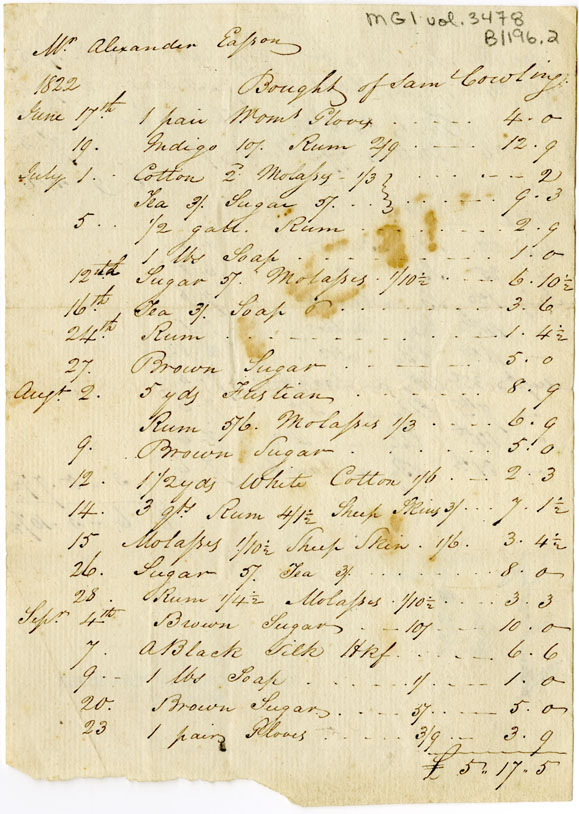 MG1 vol. 3478
B/196.2
Mr Alexander Easson
1822 Bought of Sam Cowling
June 17th 1 pair Moms Gloves 4.0
19. Indigo 10/. Rum 2/9 12.9
July 1. Cotton 2d Molassy 1/3 } 2
Tea 3/. Sugar 5/. } 9.3
5 1/2 gall. Rum 2.9
1 lbs Soap 1.0
12th Sugar 5/. Molasses 1/10½ 6.10½
16th Tea 3/. Soap 6 3.6
24th Rum 1.4½
27. Brown Sugar 5.0
Augt 2. 5 yds Fustian 8.9
Rum 5/6. Molasses 1/3 6.9
9. Brown Sugar 5.0
12. 1 1/2 yds White Cotton 1/6 2.3
14. 3 qts Rum 4/1½ Sheep Skins 3/ 7.1½
15 Molasses 1/10½ Sheep Skin. 1/6. 3.4½
26. Sugar 5/. Tea 3/. 8.0
28. Rum 1/4½ Molasses 1/10½ 3.3
Sepr. 4th Brown Sugar 10/ 10.0
7. A Black Silk Hkf. 6.6
9 1 lbs Soap 1/ 1.0
20. Brown Sugar 5/. 5.0
23 1 pair Gloves 3/9 3.9
£ 5" 17" 5